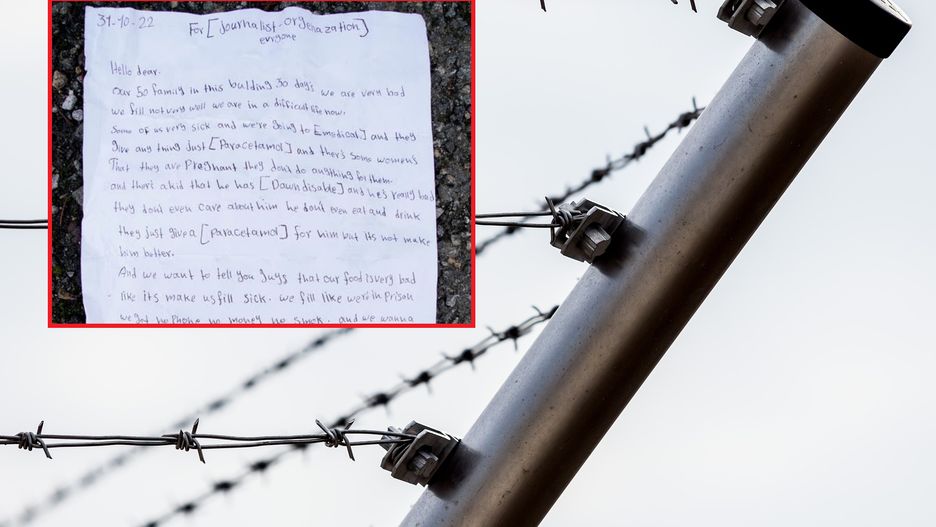 31-10-22
For [Journalist-orgenazation]
evryone
Hello dear.
our 50 family in this bulding 30 day's we are very bad
we fill not very well we are in a difficult life now.
Some of us very sick and we're going to [medical] and they
give any thing just [Paracetamol] and there's some women's
That they are Pregnant they don't do anything for them.
and there's a kid that he has [Dawn disable] and he's really bad
they dont even care about him he dont even eat and drink
they just give a [paracetamol] for him but its not make
him better.
And we want to tell you guys that our food is very bad
like its make us fill sick. we fill like we're in Prison
we got no phone no money no smok. and we wanna